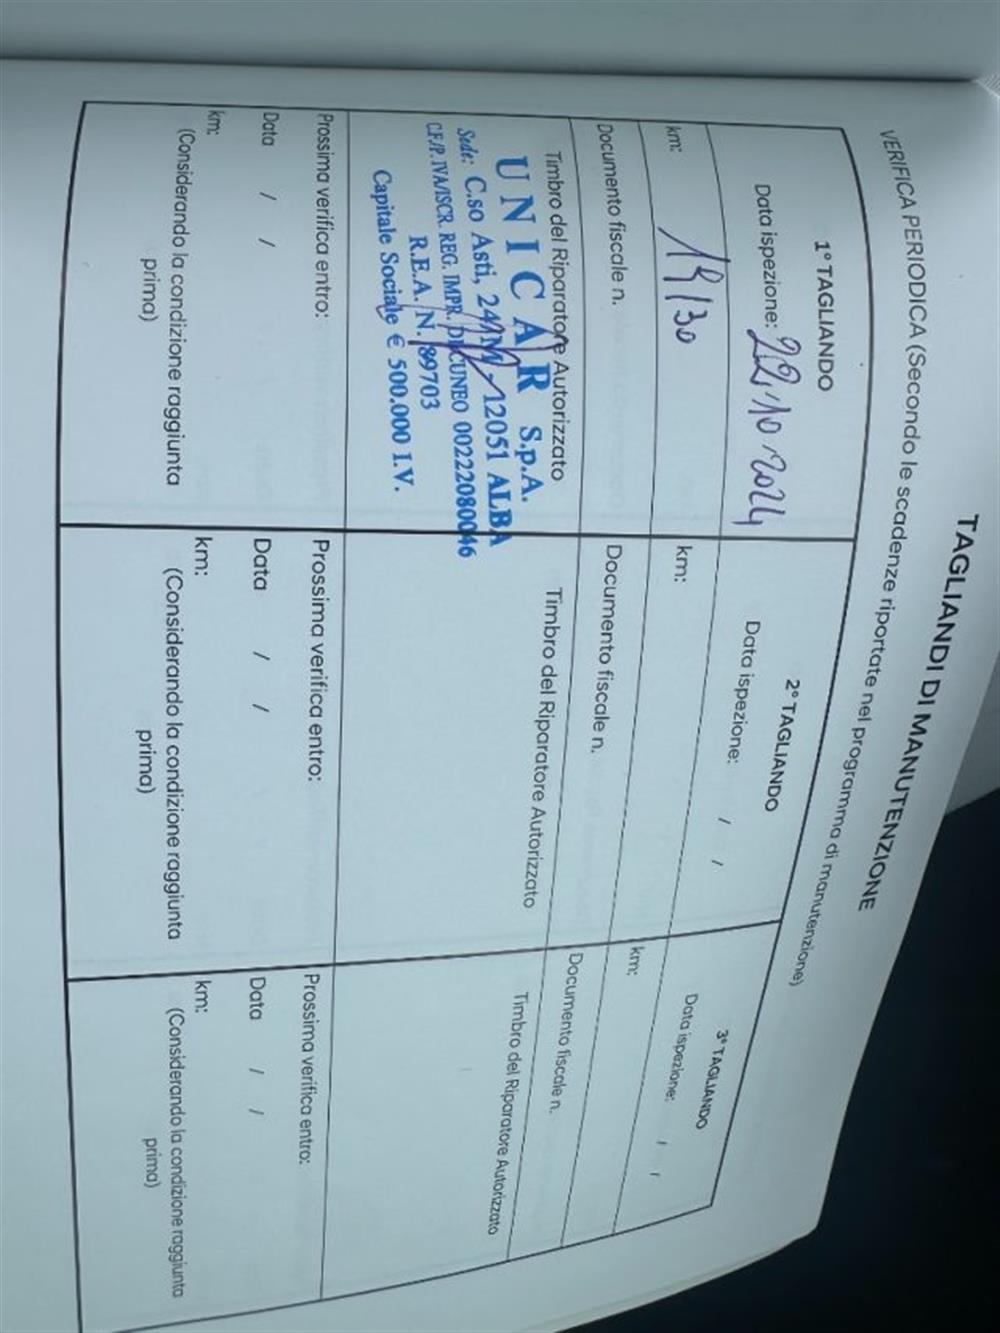 TAGLIANDI DI MANUTENZIONE
VERIFICA PERIODICA (Secondo le scadenze riportate nel programma di manutenzione)
1° TAGLIANDO
Data ispezione: 22.10.2024
km: 19130
Documento fiscale n.
Timbro del Riparatore Autorizzato
UNICAR S.p.A.
Sede: C.so Asti, 24/M - 12051 ALBA
C.F./P. IVA/ISCR. REG. IMPR. DI CUNEO 00222080046
R.E.A. N. 89703
Capitale Sociale € 500.000 I.V.
Prossima verifica entro:
Data / /
km:
(Considerando la condizione raggiunta
prima)
2° TAGLIANDO
Data ispezione: / /
km:
Documento fiscale n.
Timbro del Riparatore Autorizzato
Prossima verifica entro:
Data / /
km:
(Considerando la condizione raggiunta
prima)
3° TAGLIANDO
Data ispezione: / /
km:
Documento fiscale n.
Timbro del Riparatore Autorizzato
Prossima verifica entro:
Data / /
km:
(Considerando la condizione raggiunta
prima)